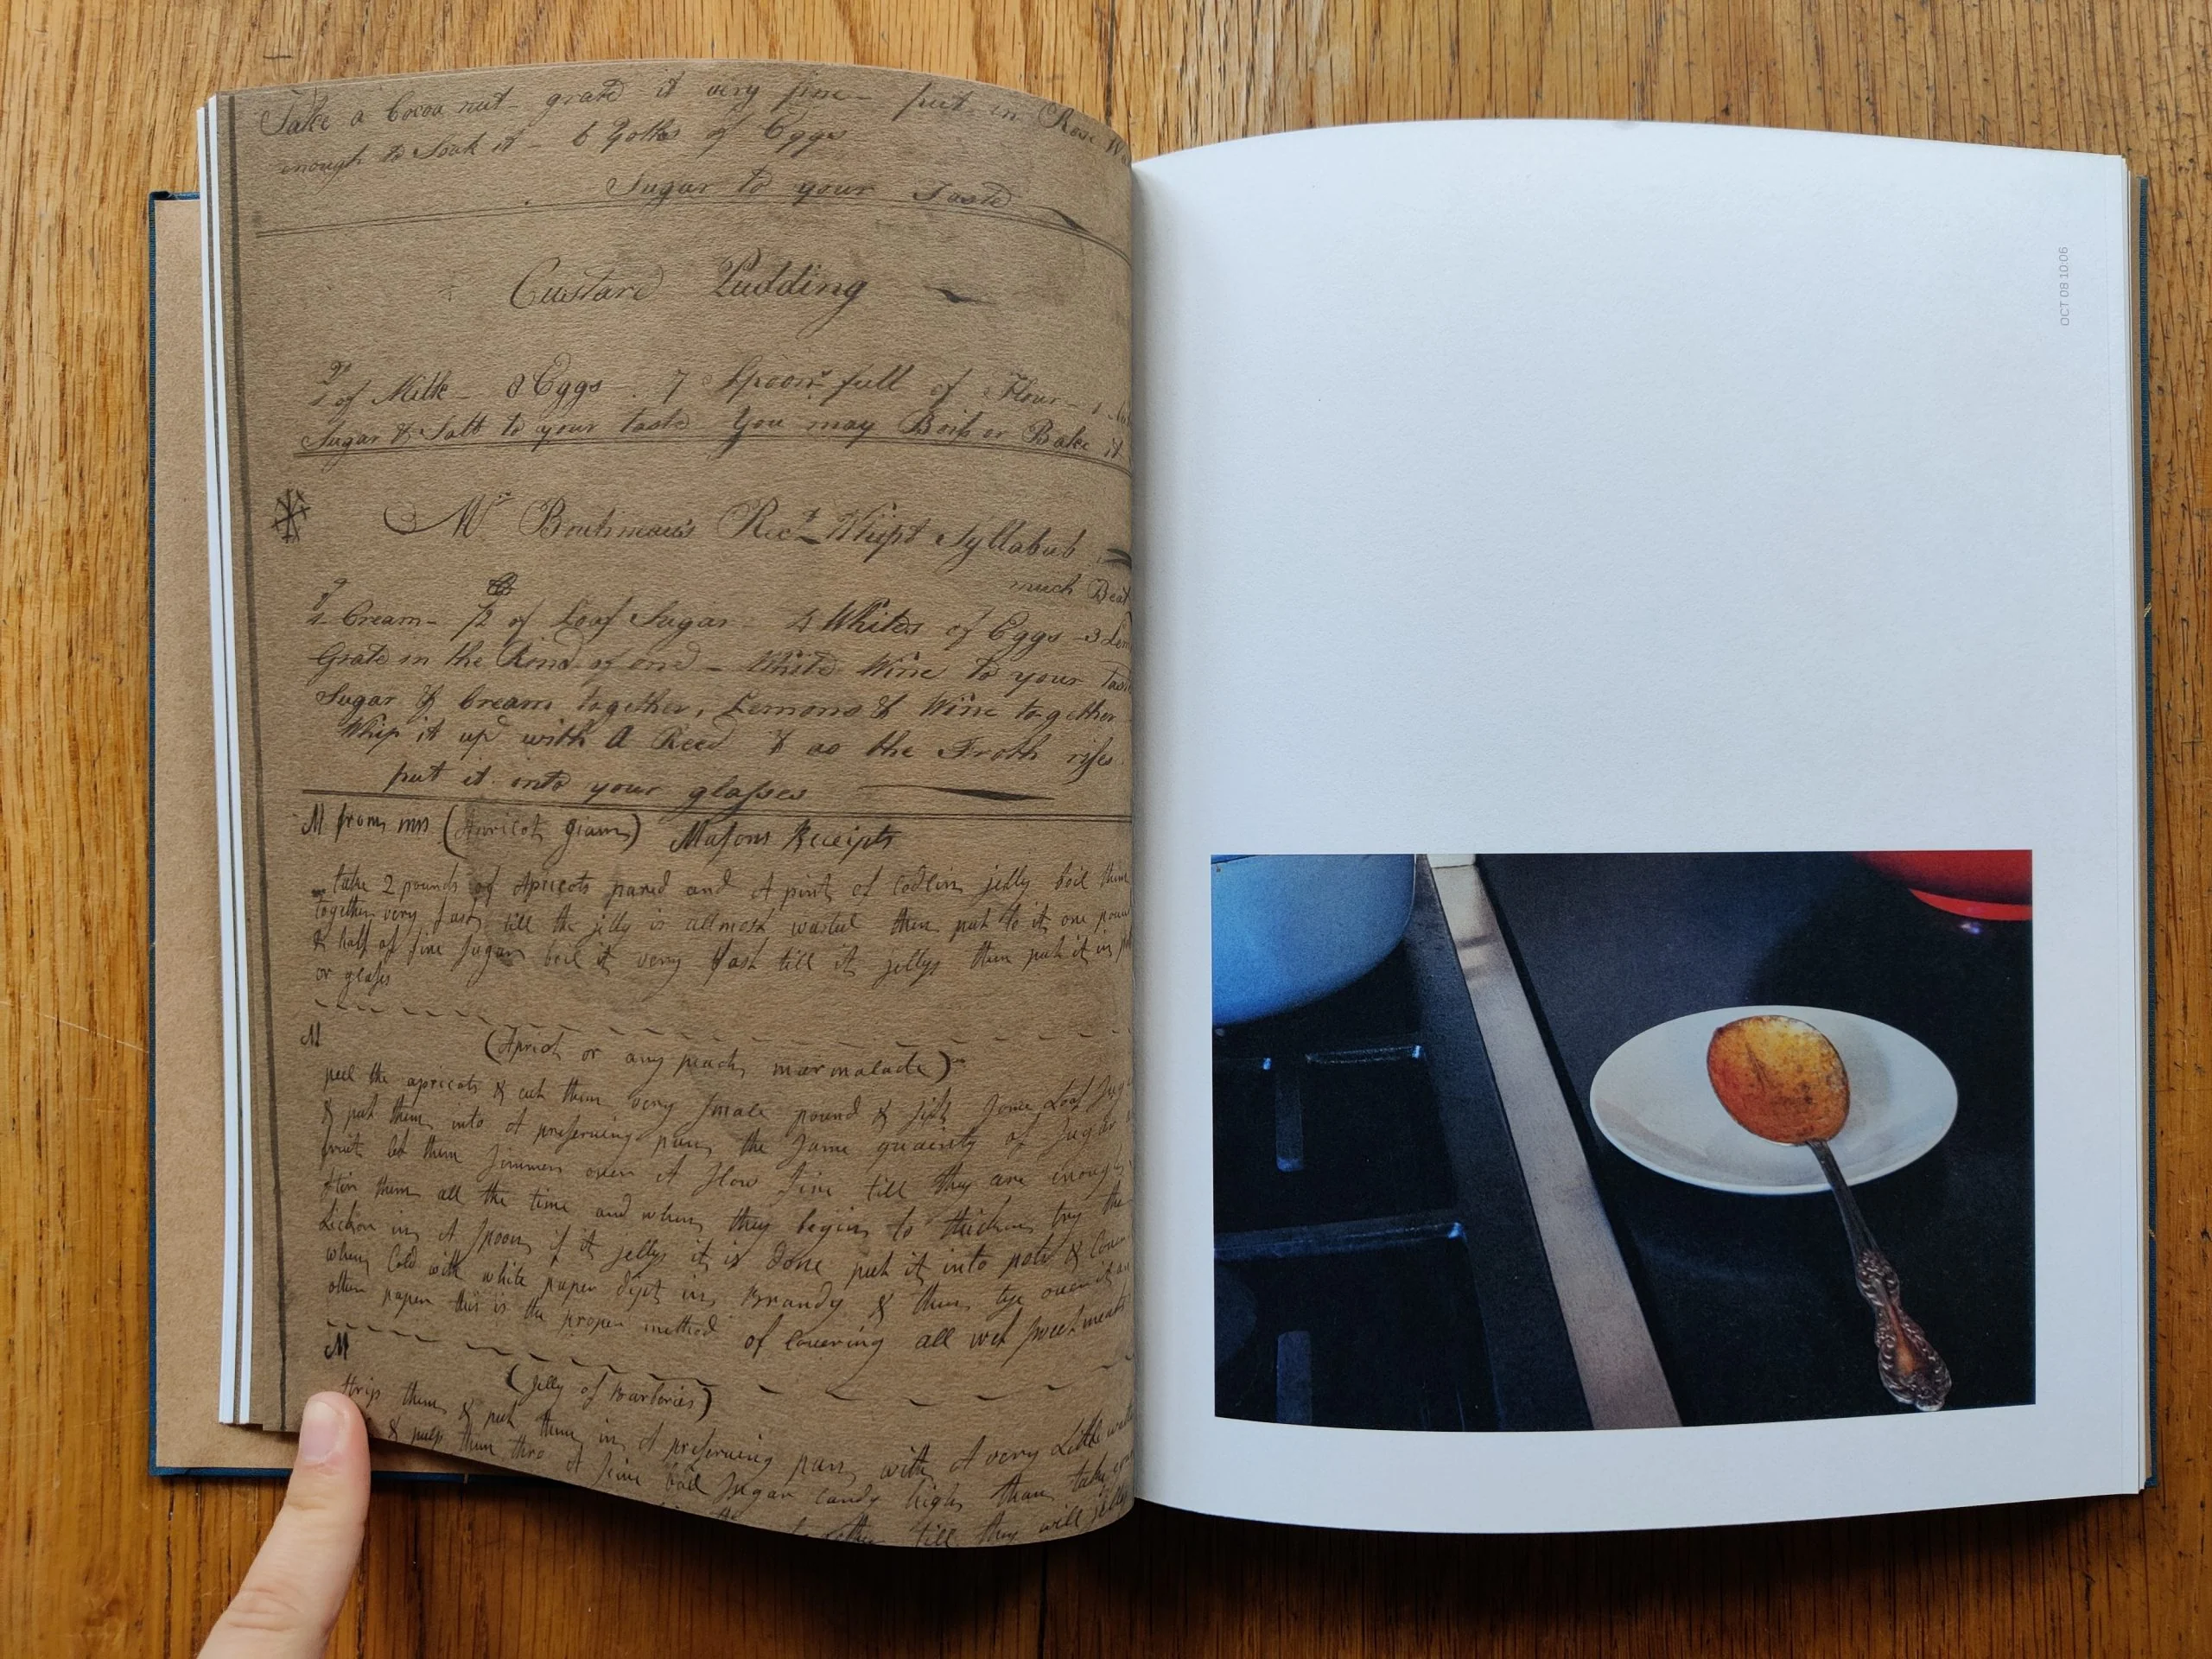 Take a Cocoa nut - grate it very fine - put in Rose
enough to Soak it - 6 Yolks of Eggs
Sugar to your Taste
Custard Pudding
of Milk - 8 Eggs - 7 Spoons full of Flour -
Sugar & Salt to your taste You may Boil or Bake it
Rect. Whipt Syllabub
much Beat
Cream - of Loaf Sugar - 4 Whites of Eggs - 3
Grate in the Rind of one - White Wine to your
Sugar & Cream together, Lemons & Wine together
Whip it up with A Reed & as the Froth rises
put it into your glasses
M from mrs (Apricot giam) Masons Receipts
take 2 pounds of Apricots pared and A pint of Codlin jelly boil them
together very fast till the jelly is allmost wasted then put to it one
& half of fine sugar boil it very fast till it jellys then put it in
or glass
M
(Apricot or any peach marmalade)
peel the apricots & cut them very smale pound & sift some Loaf
& put them into A preserving pan the same quantity of sugar
fruit let them simmer over A slow fire till they are enough
stir them all the time and when they begin to thicken try
in A spoon if it jellys it is done put it into pots &
when Cold with white paper dipt in Brandy & then tye over it
other paper this is the proper method of covering all wet sweetmeats
M
(Jelly of Barberies)
strip them & put them in A preserving pan with A very Little
& pulp them thro A sive boil sugar candy high than take
till they will
OCT 08 10:06